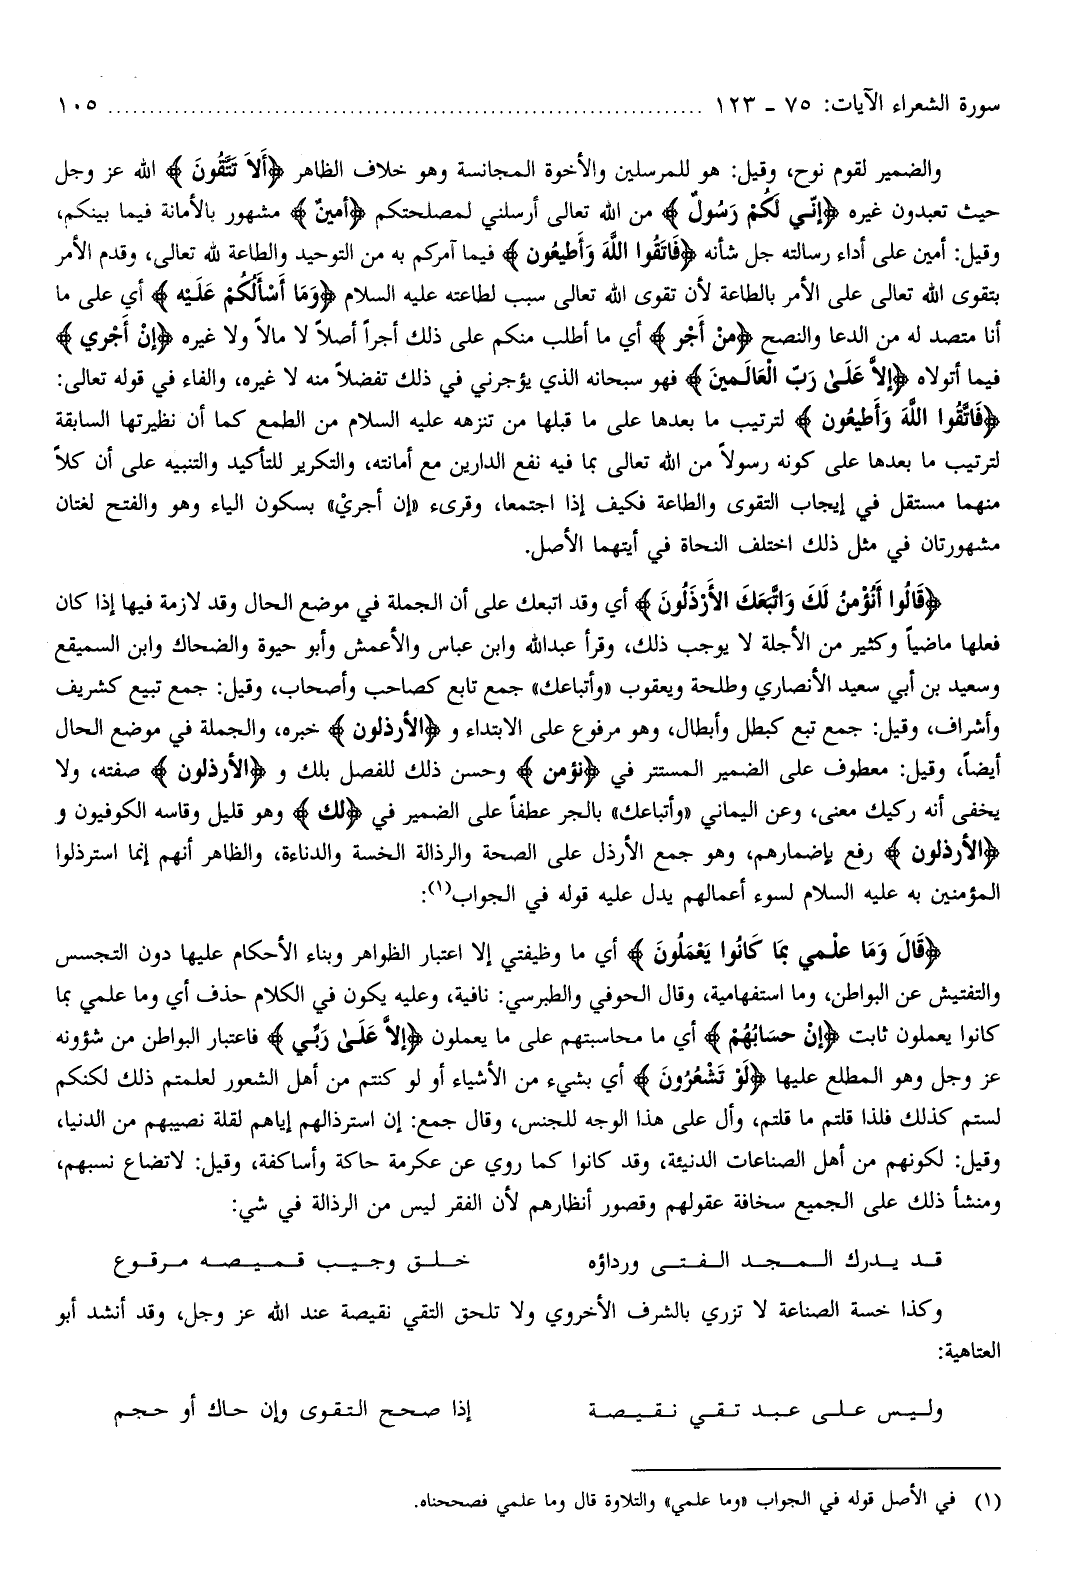 سورة الشعراء الآيات: ٧٥ - ١٢٣ ........................................................................ ١٠٥
والضمير لقوم نوح، وقيل: هو للمرسلين والأخوة المجانسة وهو خلاف الظاهر ﴿أَلاَ تَتَّقُونَ ﴾ الله عز وجل
حيث تعبدون غيره ﴿إِنّي لَكُمْ رَسُولٌ ﴾ من الله تعالى أرسلني لمصلحتكم ﴿أمينٌ ﴾ مشهور بالأمانة فيما بينكم،
وقيل: أمين على أداء رسالته جل شأنه ﴿فَاتَقُوا اللَّهَ وَأَطيعُون ﴾ فيما آمركم به من التوحيد والطاعة لله تعالى، وقدم الأمر
بتقوى الله تعالى على الأمر بالطاعة لأن تقوى الله تعالى سبب لطاعته عليه السلام ﴿وَمَا أَسْأَلُكُمْ عَلَيْه ﴾ أي على ما
أنا متصد له من الدعا والنصح ﴿منْ أَجْر ﴾ أي ما أطلب منكم على ذلك أجراً أصلاً لا مالاً ولا غيره ﴿إنْ أَجْري ﴾
فيما أتولاه ﴿إلاَّ عَلَىٰ رَبّ الْعَالَـمينَ ﴾ فهو سبحانه الذي يؤجرني في ذلك تفضلاً منه لا غيره، والفاء في قوله تعالى:
﴿فَاتَّقُوا اللَّهَ وَأَطيعُون ﴾ لترتيب ما بعدها على ما قبلها من تنزهه عليه السلام من الطمع كما أن نظيرتها السابقة
لترتيب ما بعدها على كونه رسولاً من الله تعالى بما فيه نفع الدارين مع أمانته، والتكرير للتأكيد والتنبيه على أن كلاً
منهما مستقل في إيجاب التقوى والطاعة فكيف إذا اجتمعا، وقرىء «إن أجريْ» بسكون الياء وهو والفتح لغتان
مشهورتان في مثل ذلك اختلف النحاة في أيتهما الأصل.
﴿قَالُوا أَنُؤْمنُ لَكَ وَاتَّبَعَكَ الأَرْذَلُونَ ﴾ أي وقد اتبعك على أن الجملة في موضع الحال وقد لازمة فيها إذا كان
فعلها ماضياً وكثير من الأجلة لا يوجب ذلك، وقرأ عبدالله وابن عباس والأعمش وأبو حيوة والضحاك وابن السميقع
وسعيد بن أبي سعيد الأنصاري وطلحة ويعقوب «وأتباعك» جمع تابع كصاحب وأصحاب، وقيل: جمع تبيع كشريف
وأشراف، وقيل: جمع تبع كبطل وأبطال، وهو مرفوع على الابتداء و ﴿الأرذلون ﴾ خبره، والجملة في موضع الحال
أيضاً، وقيل: معطوف على الضمير المستتر في ﴿نؤمن ﴾ وحسن ذلك للفصل بلك و ﴿الأرذلون ﴾ صفته، ولا
يخفى أنه ركيك معنى، وعن اليماني «وأتباعك» بالجر عطفاً على الضمير في ﴿لك ﴾ وهو قليل وقاسه الكوفيون و
﴿الأرذلون ﴾ رفع بإضمارهم، وهو جمع الأرذل على الصحة والرذالة الخسة والدناءة، والظاهر أنهم إنما استرذلوا
المؤمنين به عليه السلام لسوء أعمالهم يدل عليه قوله في الجواب(١):
﴿قَالَ وَمَا علْمي بمَا كَانُوا يَعْمَلُونَ ﴾ أي ما وظيفتي إلا اعتبار الظواهر وبناء الأحكام عليها دون التجسس
والتفتيش عن البواطن، وما استفهامية، وقال الحوفي والطبرسي: نافية، وعليه يكون في الكلام حذف أي وما علمي بما
كانوا يعملون ثابت ﴿إنْ حسَابُهُمْ ﴾ أي ما محاسبتهم على ما يعملون ﴿إلاَّ عَلَىٰ رَبِّي ﴾ فاعتبار البواطن من شؤونه
عز وجل وهو المطلع عليها ﴿لَوْ تَشْعُرُونَ ﴾ أي بشيء من الأشياء أو لو كنتم من أهل الشعور لعلمتم ذلك لكنكم
لستم كذلك فلذا قلتم ما قلتم، وأل على هذا الوجه للجنس، وقال جمع: إن استرذالهم إياهم لقلة نصيبهم من الدنيا،
وقيل: لكونهم من أهل الصناعات الدنيئة، وقد كانوا كما روي عن عكرمة حاكة وأساكفة، وقيل: لاتضاع نسبهم،
ومنشأ ذلك على الجميع سخافة عقولهم وقصور أنظارهم لأن الفقر ليس من الرذالة في شي:
قد يدرك المجد الفتى ورداؤه خلق وجيب قميصه مرقوع
وكذا خسة الصناعة لا تزري بالشرف الأخروي ولا تلحق التقي نقيصة عند الله عز وجل، وقد أنشد أبو
العتاهية:
وليس على عبد تقي نقيصة إذا صحح التقوى وإن حاك أو حجم
(١) في الأصل قوله في الجواب «وما علمي» والتلاوة قال وما علمي فصححناه.